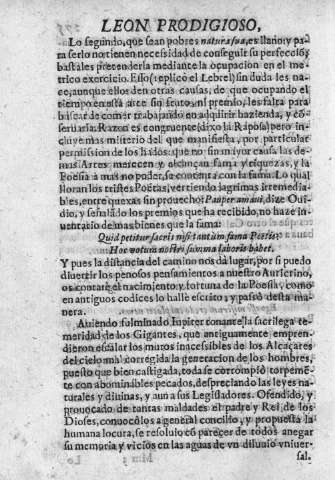 LEON PRODIGIOSO,
Lo segundo, que sean pobres natura sua, es llano: y pa
ra serlo no tienen necessidad de conseguir su perfeccio,
bastales pretenderla mediante la ocupacion en el me
trico exercicio. Esso (replicò el Lebrel) sin duda les na-
ce, aunque ellos den otras causas, de que ocupando el
tiempo en esta arte sin fruto, ni premio, les falta para
buscar de comer trabajando en adquirir hazienda, y cõ
seruarla: Razon es congruente (dixo la Raposa) pero in-
cluye mas misterio del que manifiesta, por particular
permission de los hados: que no sin mayor causa las de-
mas Artes merecen y alcançan fama y riquezas, y la
Poesia a mas no poder, se contenta con la fama. Lo qual
lloran los tristes Poëtas, vertiendo lagrimas irremedia-
bles, entre quexas sin prouecho: Pauper amaui, dize Oui-
dio, y señalado los premios que ha recibido, no haze in-
uentario de mas bienes que la fama:
Quid petitur sacris nisi tantùm fama Poetis?
Hoc votum nostri summa laboris habet.
Y pues la distancia del camino nos dà lugar, por si puedo
diuertir los penosos pensamientos a nuestro Auricrino,
os contarè el nacimiento y fortuna de la Poesia, como
en antiguos codices lo hallè escrito; y passò desta ma-
nera.
Auiendo fulminado Iupiter tonante la sacrilega te-
meridad de los Gigantes, que antiguamente empren-
dieron escalar los muros inaccessibles de los Alcaçares
del cielo, mal corregida la generacion de los hombres,
puesto que bien castigada, toda se corrompiò torpemé-
te con abominables pecados, despreciando las leyes na-
turales y diuinas, y aun a sus Legisladores. Ofendido, y
prouocado de tantas maldades el padre y Rei de los
Dioses, conuocòlos a general concilio, y propuesta la
humana locura, se resoluio cõ parecer de todos anegar
su memoria y vicios en las aguas de vn diluuio vniuer-
sal.